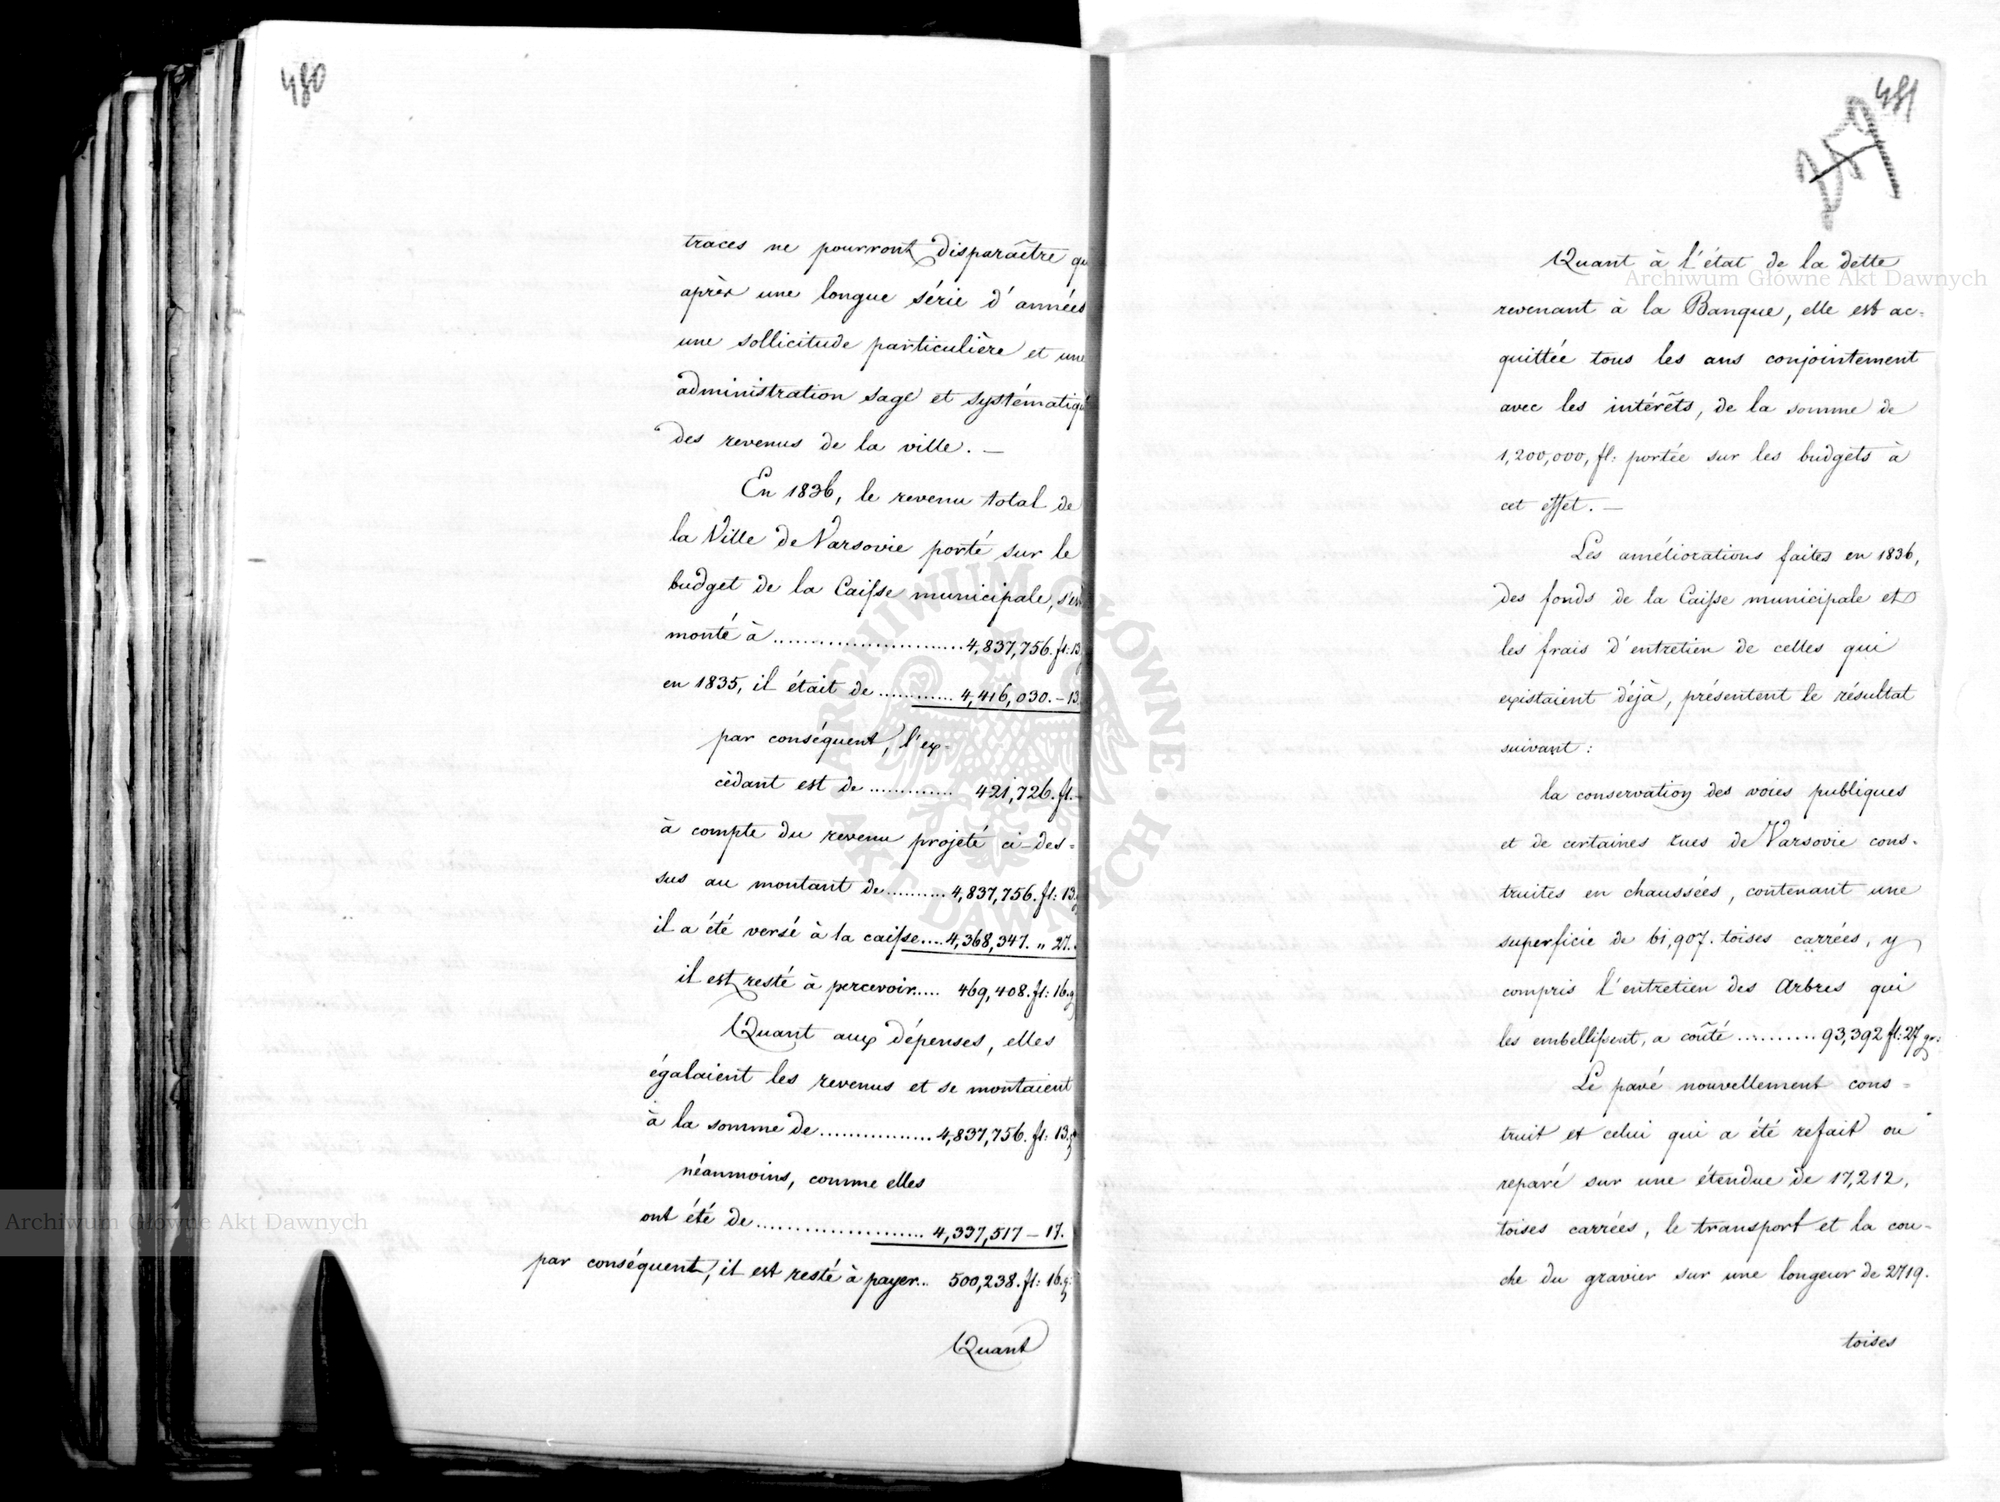 480
traces ne pourront disparaître qu
après une longue série d'années
une sollicitude particulière et une
administration sage et systématiqu
des revenus de la ville. —
En 1836, le revenu total de
la Ville de Varsovie porté sur le
budget de la Caisse municipale, s'est
monté à ........................ 4,837,756. fl: 13.
en 1835, il était de ............ 4,416,030. – 13.
par conséquent, l'ex-
cédant est de ............. 421,726. fl. –
à compte du revenu projeté ci-des=
sus au montant de .......... 4,837,756. fl: 13. g
il a été versé à la caisse.... 4,368,347. „ 27.
il est resté à percevoir..... 469,408. fl: 16. g
Quant aux dépenses, elles
égalaient les revenus et se montaient
à la somme de ................ 4,837,756. fl: 13. g
néanmoins, comme elles
ont été de ........................ 4,337,517 – 17.
par conséquent, il est resté à payer... 500,238. fl: 16. g:
Quant
481
Quant à l'état de la dette
revenant à la Banque, elle est ac=
quittée tous les ans conjointement
avec les intérêts, de la somme de
1,200,000, fl: portée sur les budgets à
cet effet. —
Les améliorations faites en 1836,
des fonds de la Caisse municipale et
les frais d'entretien de celles qui
existaient déjà, présentent le résultat
suivant:
la conservation des voies publiques
et de certaines rues de Varsovie cons-
truites en chaussées, contenant une
superficie de 61,907. toises carrées, y
compris l'entretien des Arbres qui
les embellissent, a coûté .......... 93,392 fl: 27 gr:
Le pavé nouvellement cons=
truit et celui qui a été refait ou
reparé sur une étendue de 17,212,
toises carrées, le transport et la cou-
che du gravier sur une longeur de 2719.
toises
Archiwum Główne Akt Dawnych
Archiwum Główne Akt Dawnych
ARCHIWUM GŁÓWNE AKT DAWNYCH W WARSZAWIE